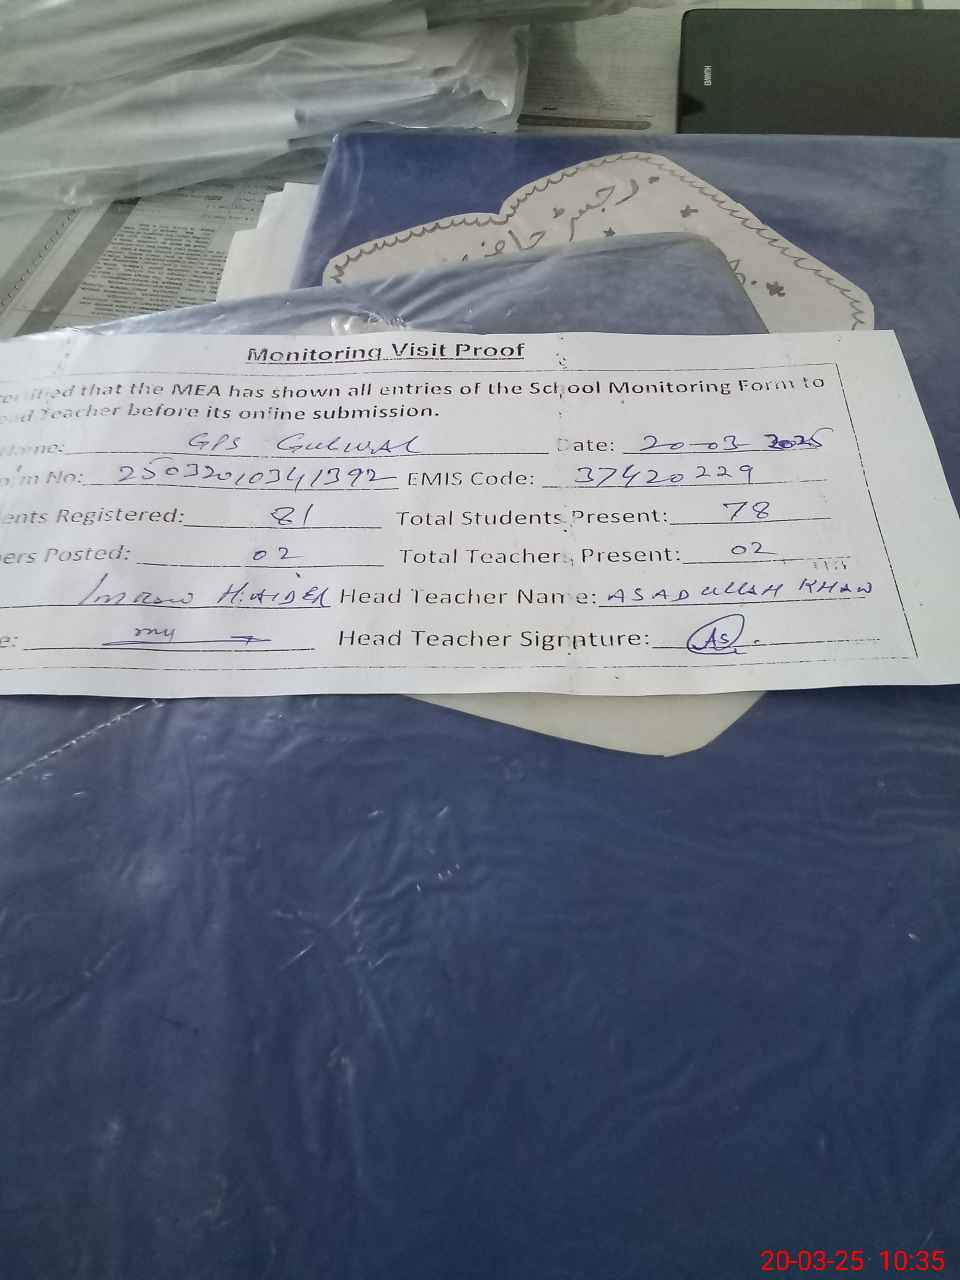 HUAWEI
رجسٹر حاضر
Monitoring Visit Proof
that the MEA has shown all entries of the School Monitoring Form to
ead Teacher before its online submission.
Name: GPS GULWAL Date: 20-03 2025
orm No: 25032010341392 EMIS Code: 37420229
ents Registered: 81 Total Students Present: 78
ers Posted: 02 Total Teachers Present: 02
Imran HAIDER Head Teacher Name: ASADULLAH KHAN
e: my Head Teacher Signature: As
20-03-25 10:35